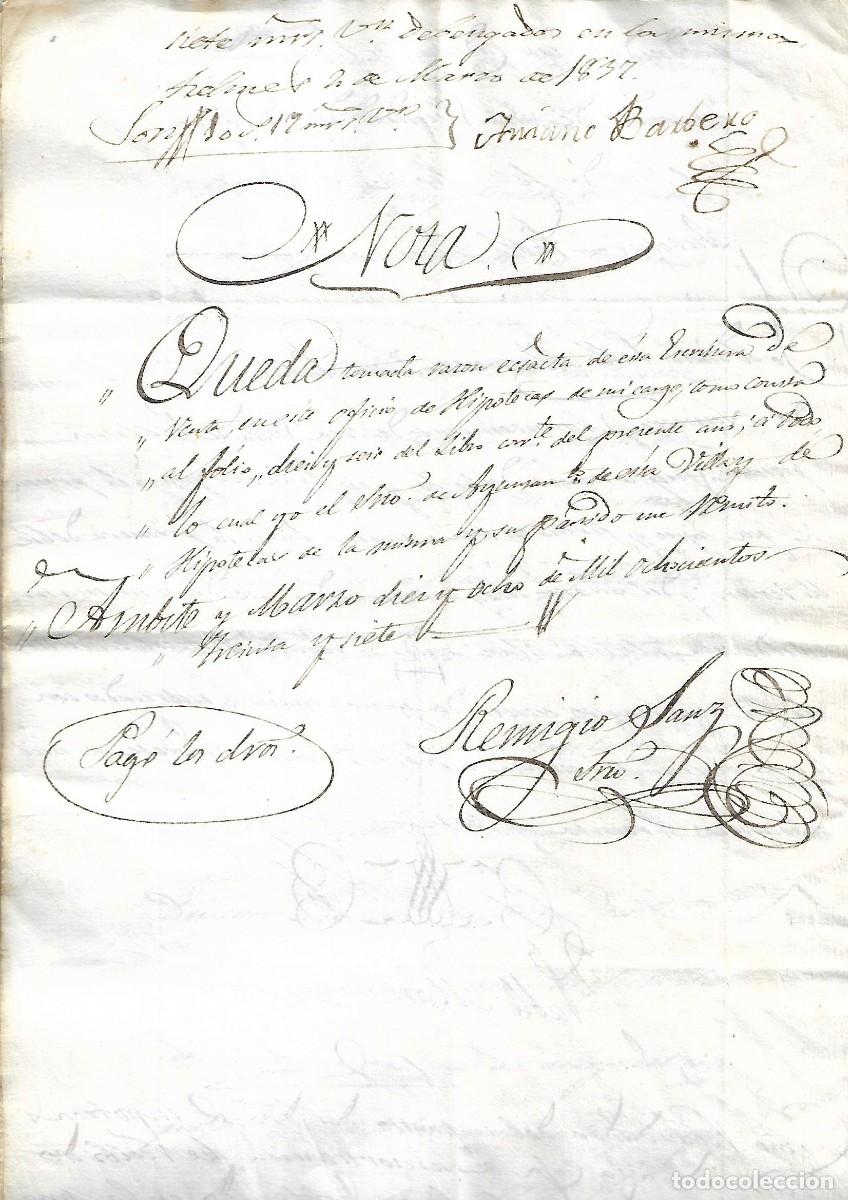 siete mrs. Vn. debengados en la misma,
2 de Marzo de 1837.
Son 17 mrs. Vn. } Barbero
Nota.
" Queda tomada razon ecsacta de esta Escritura de
" Venta, en este oficio de Hipotecas de mi cargo, como consta
" al folio, diez y seis del Libro corte. del presente año; á todo
" lo cual yo el Srio. de Ayuntamto. de esta Villa y de
" Hipotecas de la misma y su partido me remito.
" Ambite y Marzo diez y ocho de Mil ochocientos
" Treinta y siete
Remigio Sanz
Srio.
Pagó los dros.
todocoleccion